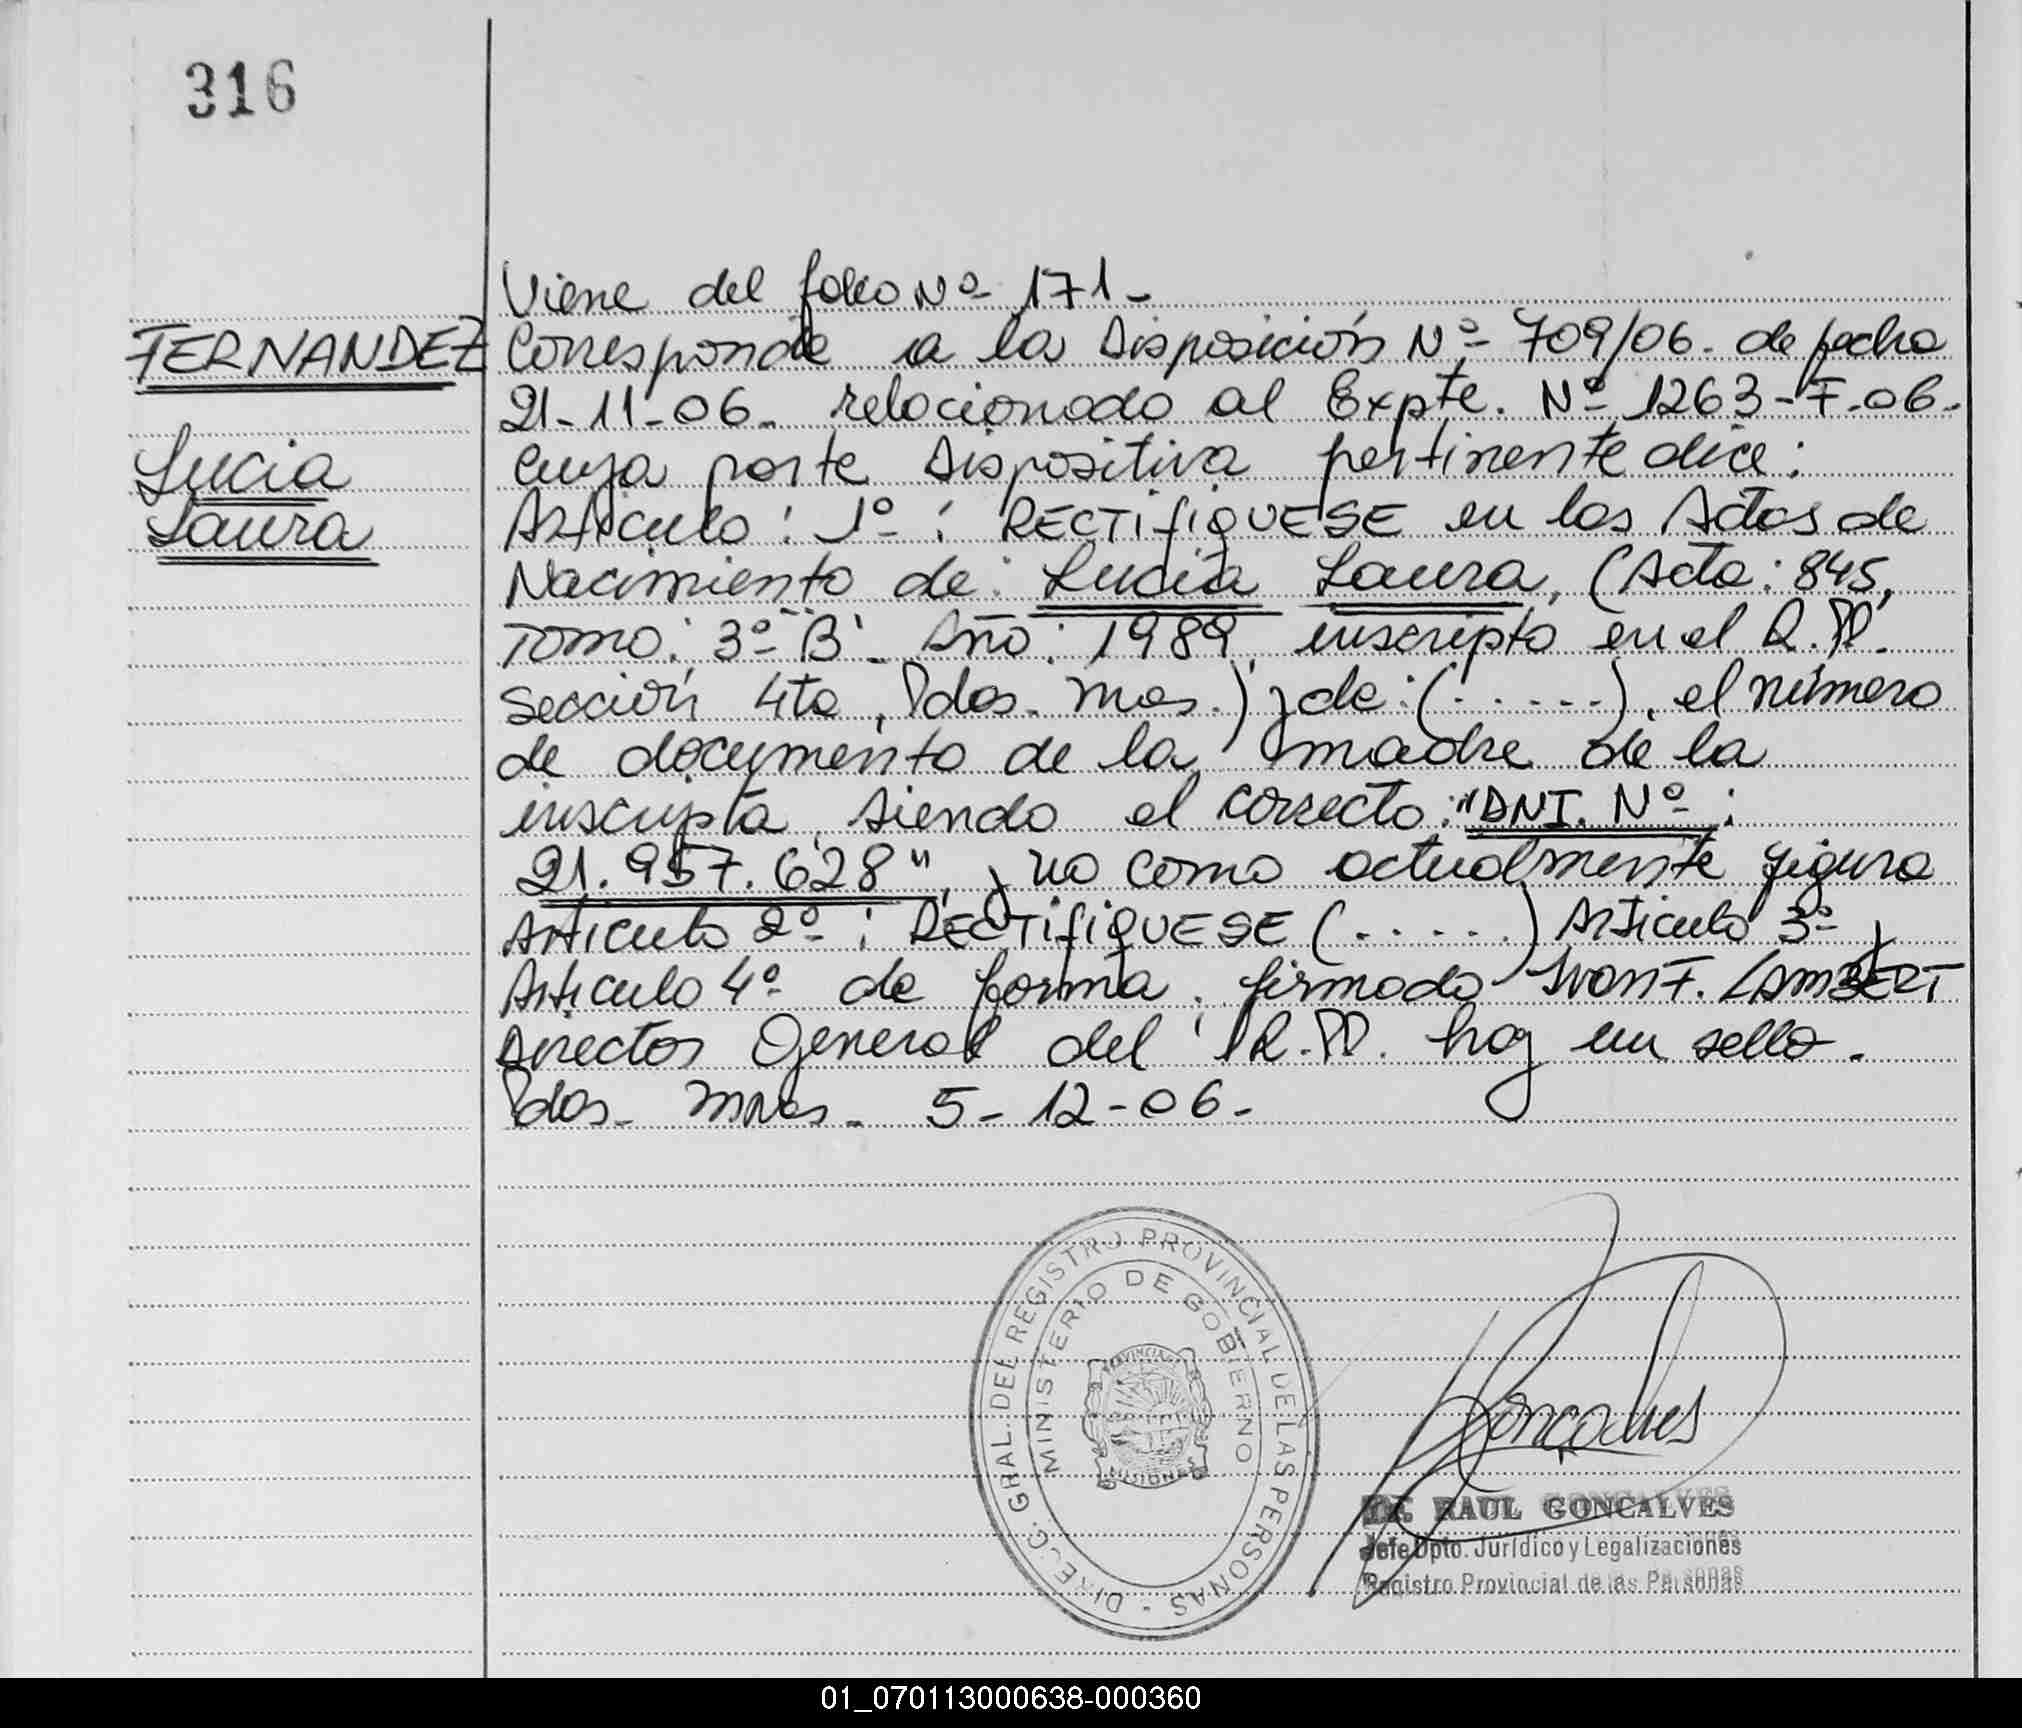 316
Viene del folio Nº 171-
FERNANDEZ
Corresponde a la Disposición Nº 709/06. de fecha
21-11-06. relacionado al Expte. Nº 1263-F-06.
Lucia
cuya parte Dispositiva pertinente dice:
Laura
Articulo: 1º: RECTIFIQUESE en las Actas de
Nacimiento de: Lucia Laura, (Acta: 845,
Tomo: 3º "B". Año: 1989, inscripta en el R.P.
Sección 4ta, Pdas. Mnes.) y de: (......), el número
de documento de la madre de la
inscripta, siendo el correcto: "DNI. Nº:
21.957.628", y no como actualmente figura
Articulo 2º: RECTIFIQUESE (......) Articulo 3º y
Articulo 4º de forma. firmado Ivan F. LAMBERT
Director General del R.P. hay un sello.
Pdas. Mnes. 5-12-06.
DIRECC. GRAL. DEL REGISTRO PROVINCIAL DE LAS PERSONAS -
MINISTERIO DE GOBIERNO
PROVINCIA
MISIONES
Goncalves
Dr. RAUL GONCALVES
Jefe Dpto. Jurídico y Legalizaciones
Registro Provincial de las Personas
01_070113000638-000360